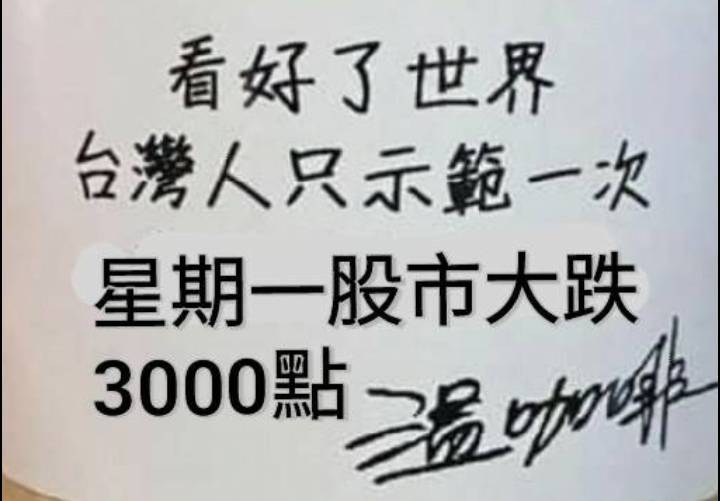 看好了世界
台灣人只示範一次
星期一股市大跌
3000點
溫咖啡